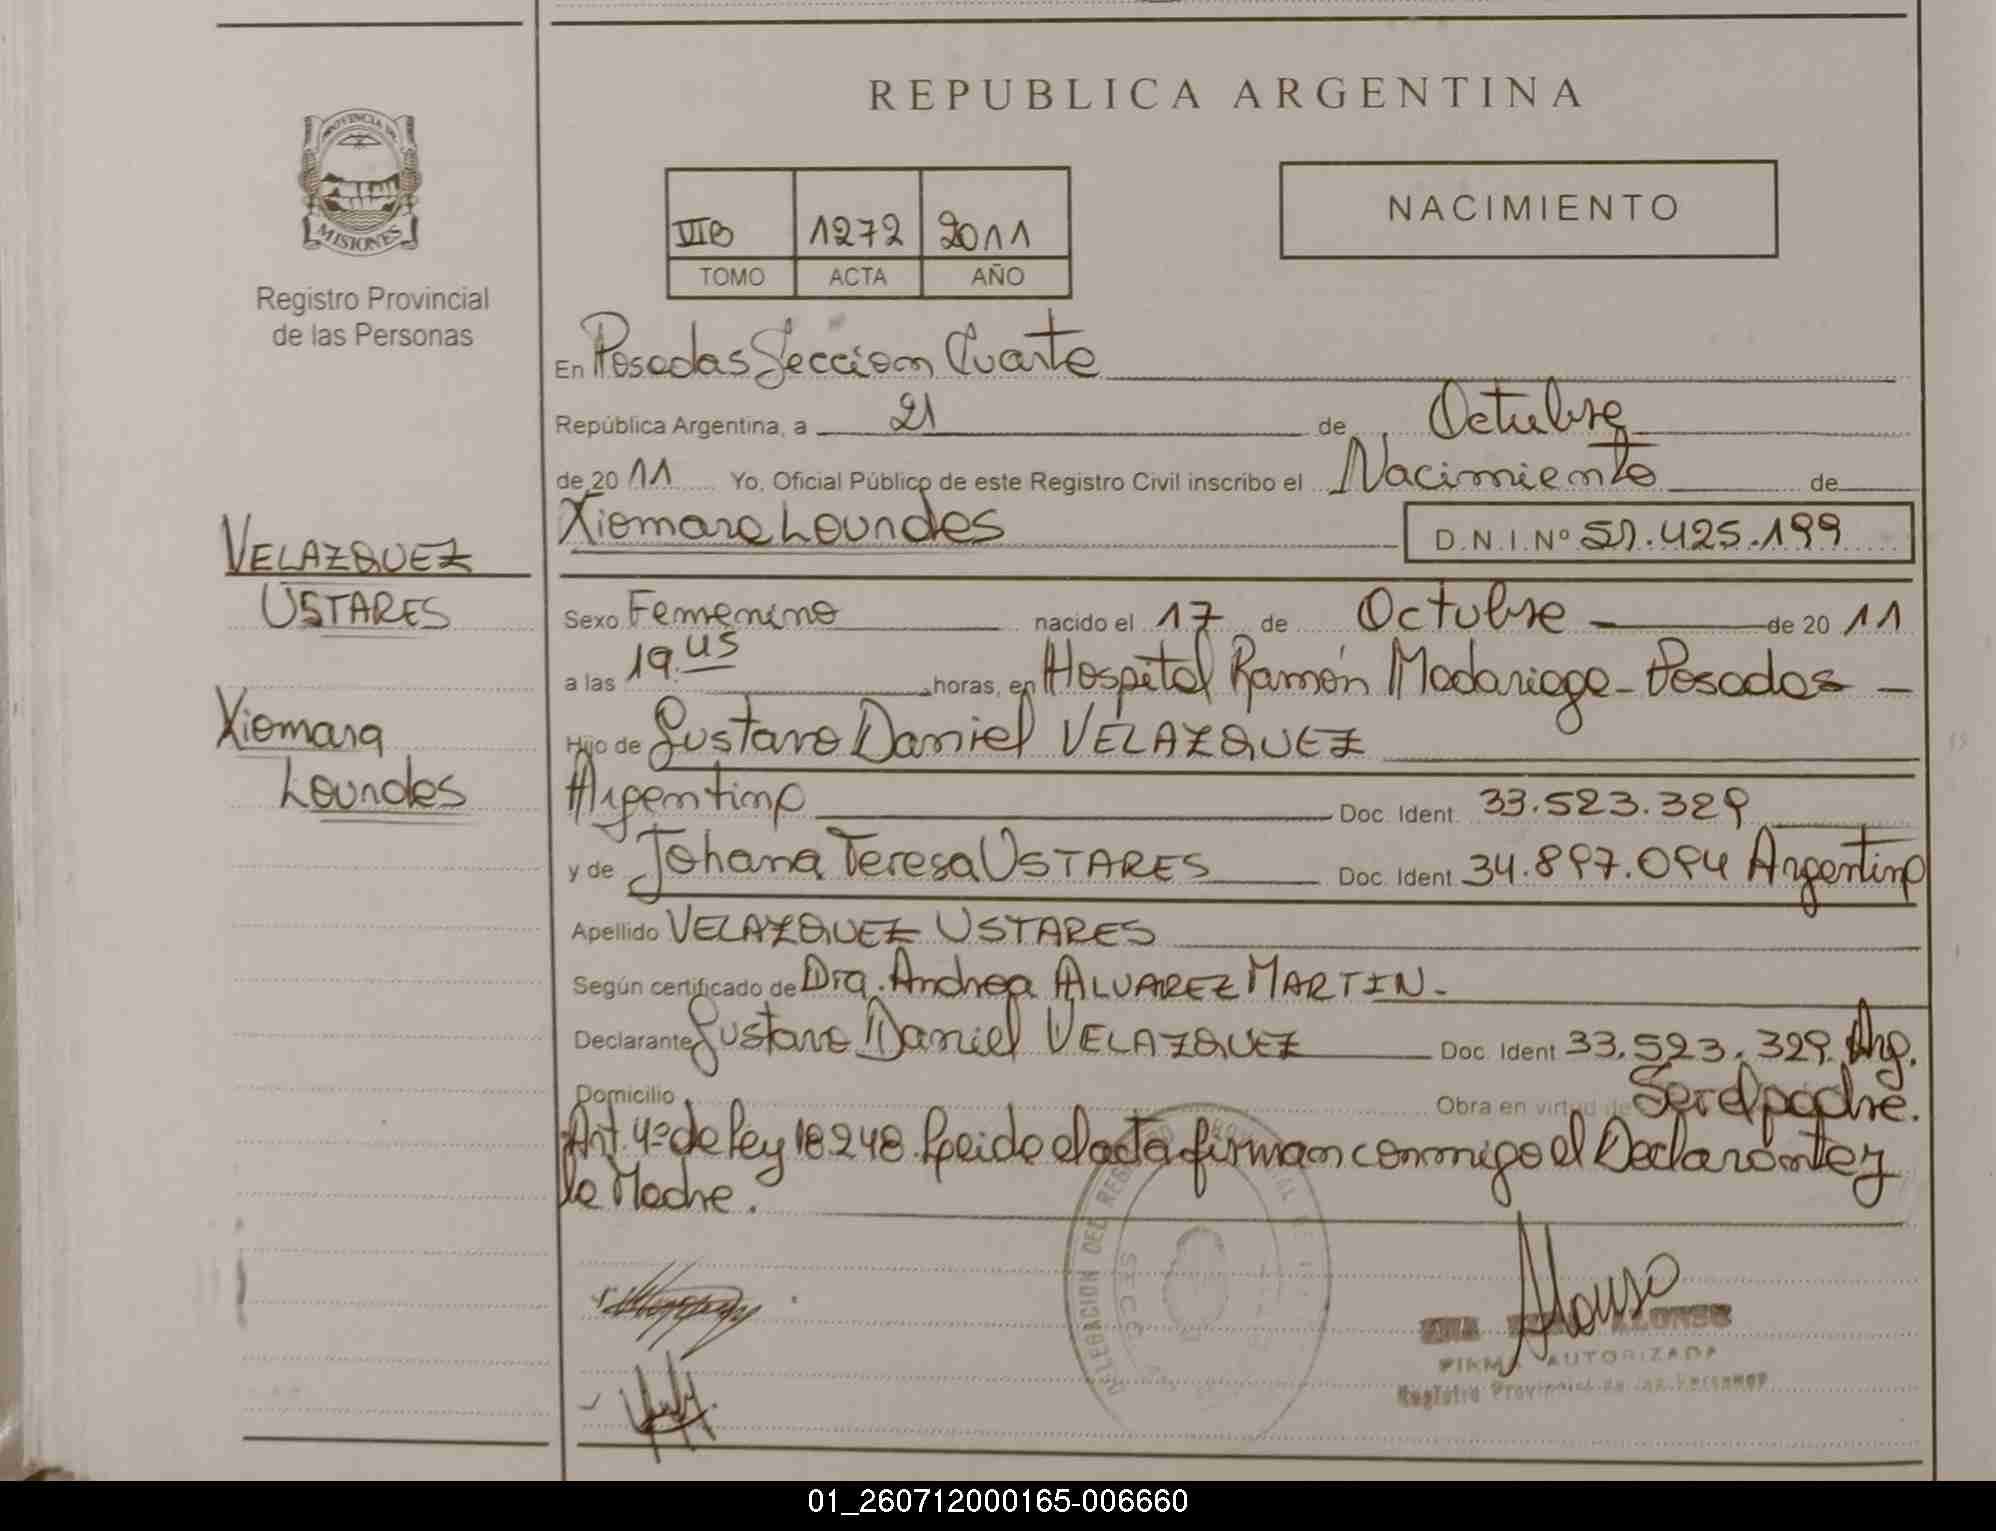 REPUBLICA ARGENTINA
PROVINCIA DE
MISIONES
Registro Provincial
de las Personas
VIIB 1272 2011
TOMO ACTA AÑO
NACIMIENTO
En Posadas Seccion Cuarta
República Argentina, a 21 de Octubre
de 2011 Yo, Oficial Público de este Registro Civil inscribo el Nacimiento de
Xiomara Lourdes D.N.I.Nº 51.425.199
VELAZQUEZ
USTARES
Xiomara
Lourdes
Sexo Femenino nacido el 17 de Octubre de 2011
a las 19.45 horas, en Hospital Ramón Madariaga - Posadas -
Hijo de Gustavo Daniel VELAZQUEZ
Argentino Doc. Ident. 33.523.329
y de Johana Teresa USTARES Doc. Ident. 34.897.094 Argentina
Apellido VELAZQUEZ USTARES
Según certificado de Dra. Andrea ALVAREZ MARTIN.
Declarante Gustavo Daniel VELAZQUEZ Doc. Ident 33.523.329. Arg.
Domicilio Obra en virtud de Ser el padre.
Art. 4º de Ley 18.248. Leida el acta firman conmigo el Declarante y
la Madre.
DELEGACION DEL REGISTRO PROVINCIAL
SECC
Alonso
ALONSO
FIRMA AUTORIZADA
Registro Provincial de las Personas
01_260712000165-006660